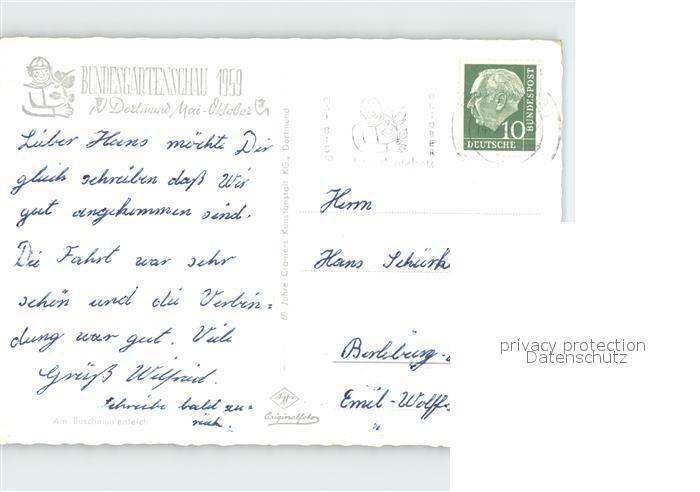 BUNDESGARTENSCHAU 1959
Dortmund Mai-Oktober
Lieber Hans möchte Dir
gleich schreiben daß Wir
gut angekommen sind.
Die Fahrt war sehr
schön und die Verbin=
dung war gut. Viele
Grüß Wilfried.
Schreibe bald zu=
rück.
Am Buschmühlenteich
60 Jahre Cramers Kunstanstalt KG., Dortmund
Agfa
Originalfoto
10
DEUTSCHE
BUNDESPOST
Herrn
Hans Schürk
Berleburg
Emil-Wolff
"
privacy protection
Datenschutz